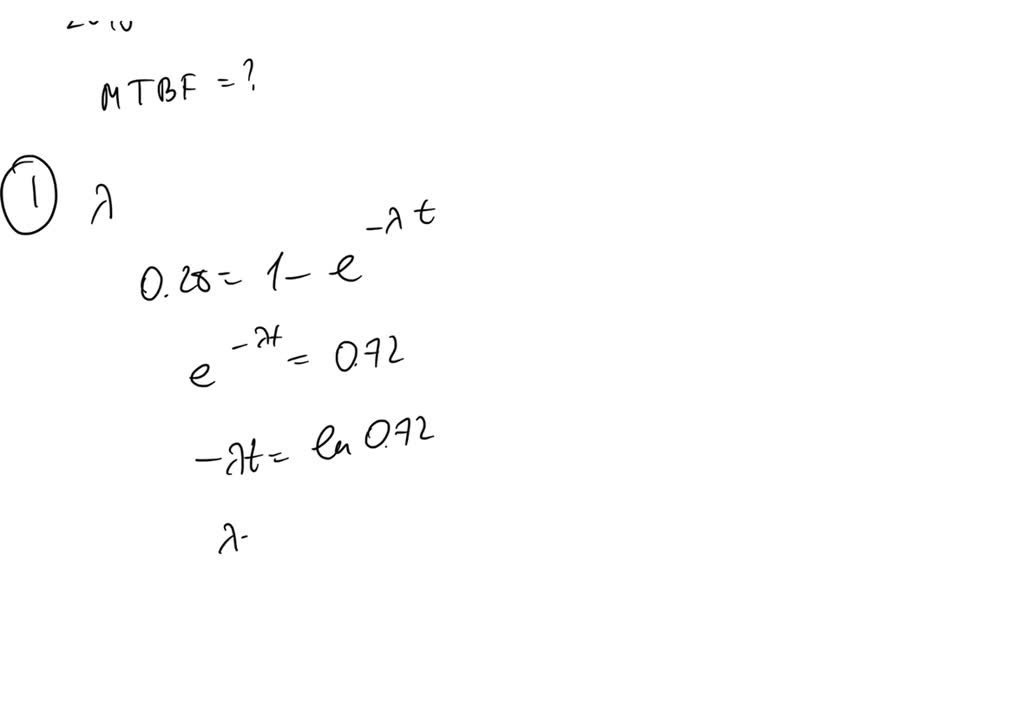 MTBF = ?
① λ
0.28 = 1 - e^{-λt}
e^{-λt} = 0.72
-λt = ln 0.72
λ-